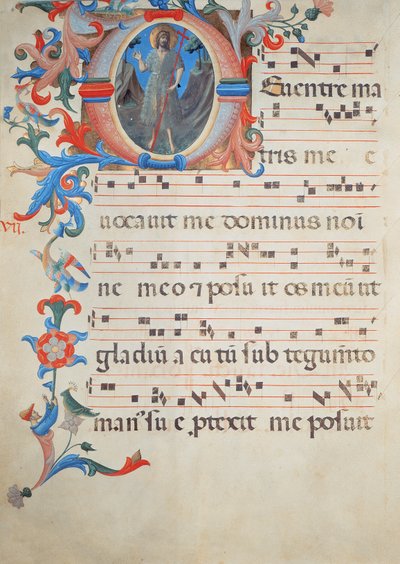 Euentre ma
tris me e
uocauit me dominus noi
VII.
ne meo ⁊ posu it os meũ ut
gladiũ a cu tũ sub tegumẽto
manꝰ su e ꝓtexit me posuit